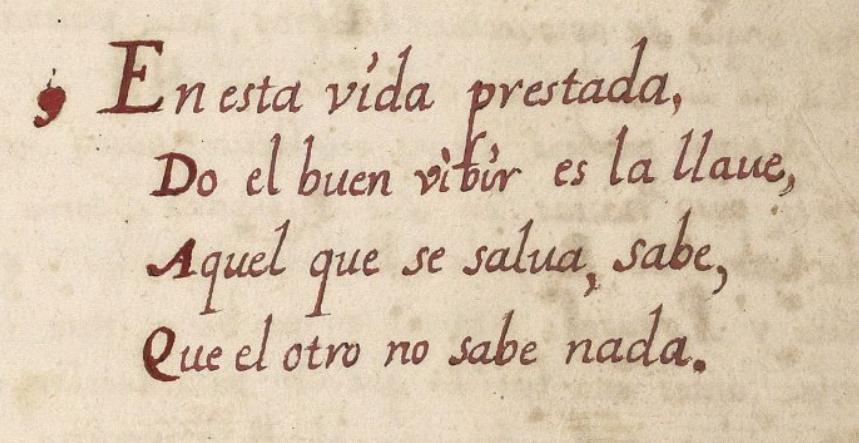 En esta vida prestada,
Do el buen vibir es la llaue,
Aquel que se salua, sabe,
Que el otro no sabe nada.